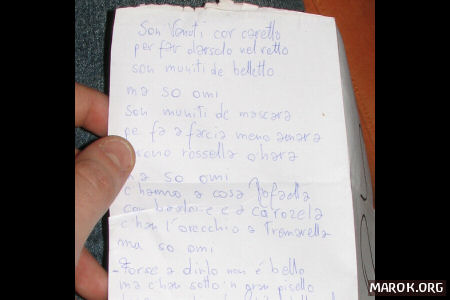 Son Venuti cor caretto
per far darselo nel retto
son muniti de belletto
ma so omi
son muniti de mascara
pe fa a farcia meno amara
rossella ohara
ma so omi
c'hanno a cosa
e a carozela
c'han l'orecchio a Tremarella
ma so omi
- Forse a dirlo non é bello
ma c'han sotto 'n gran pisello
MAROK.ORG